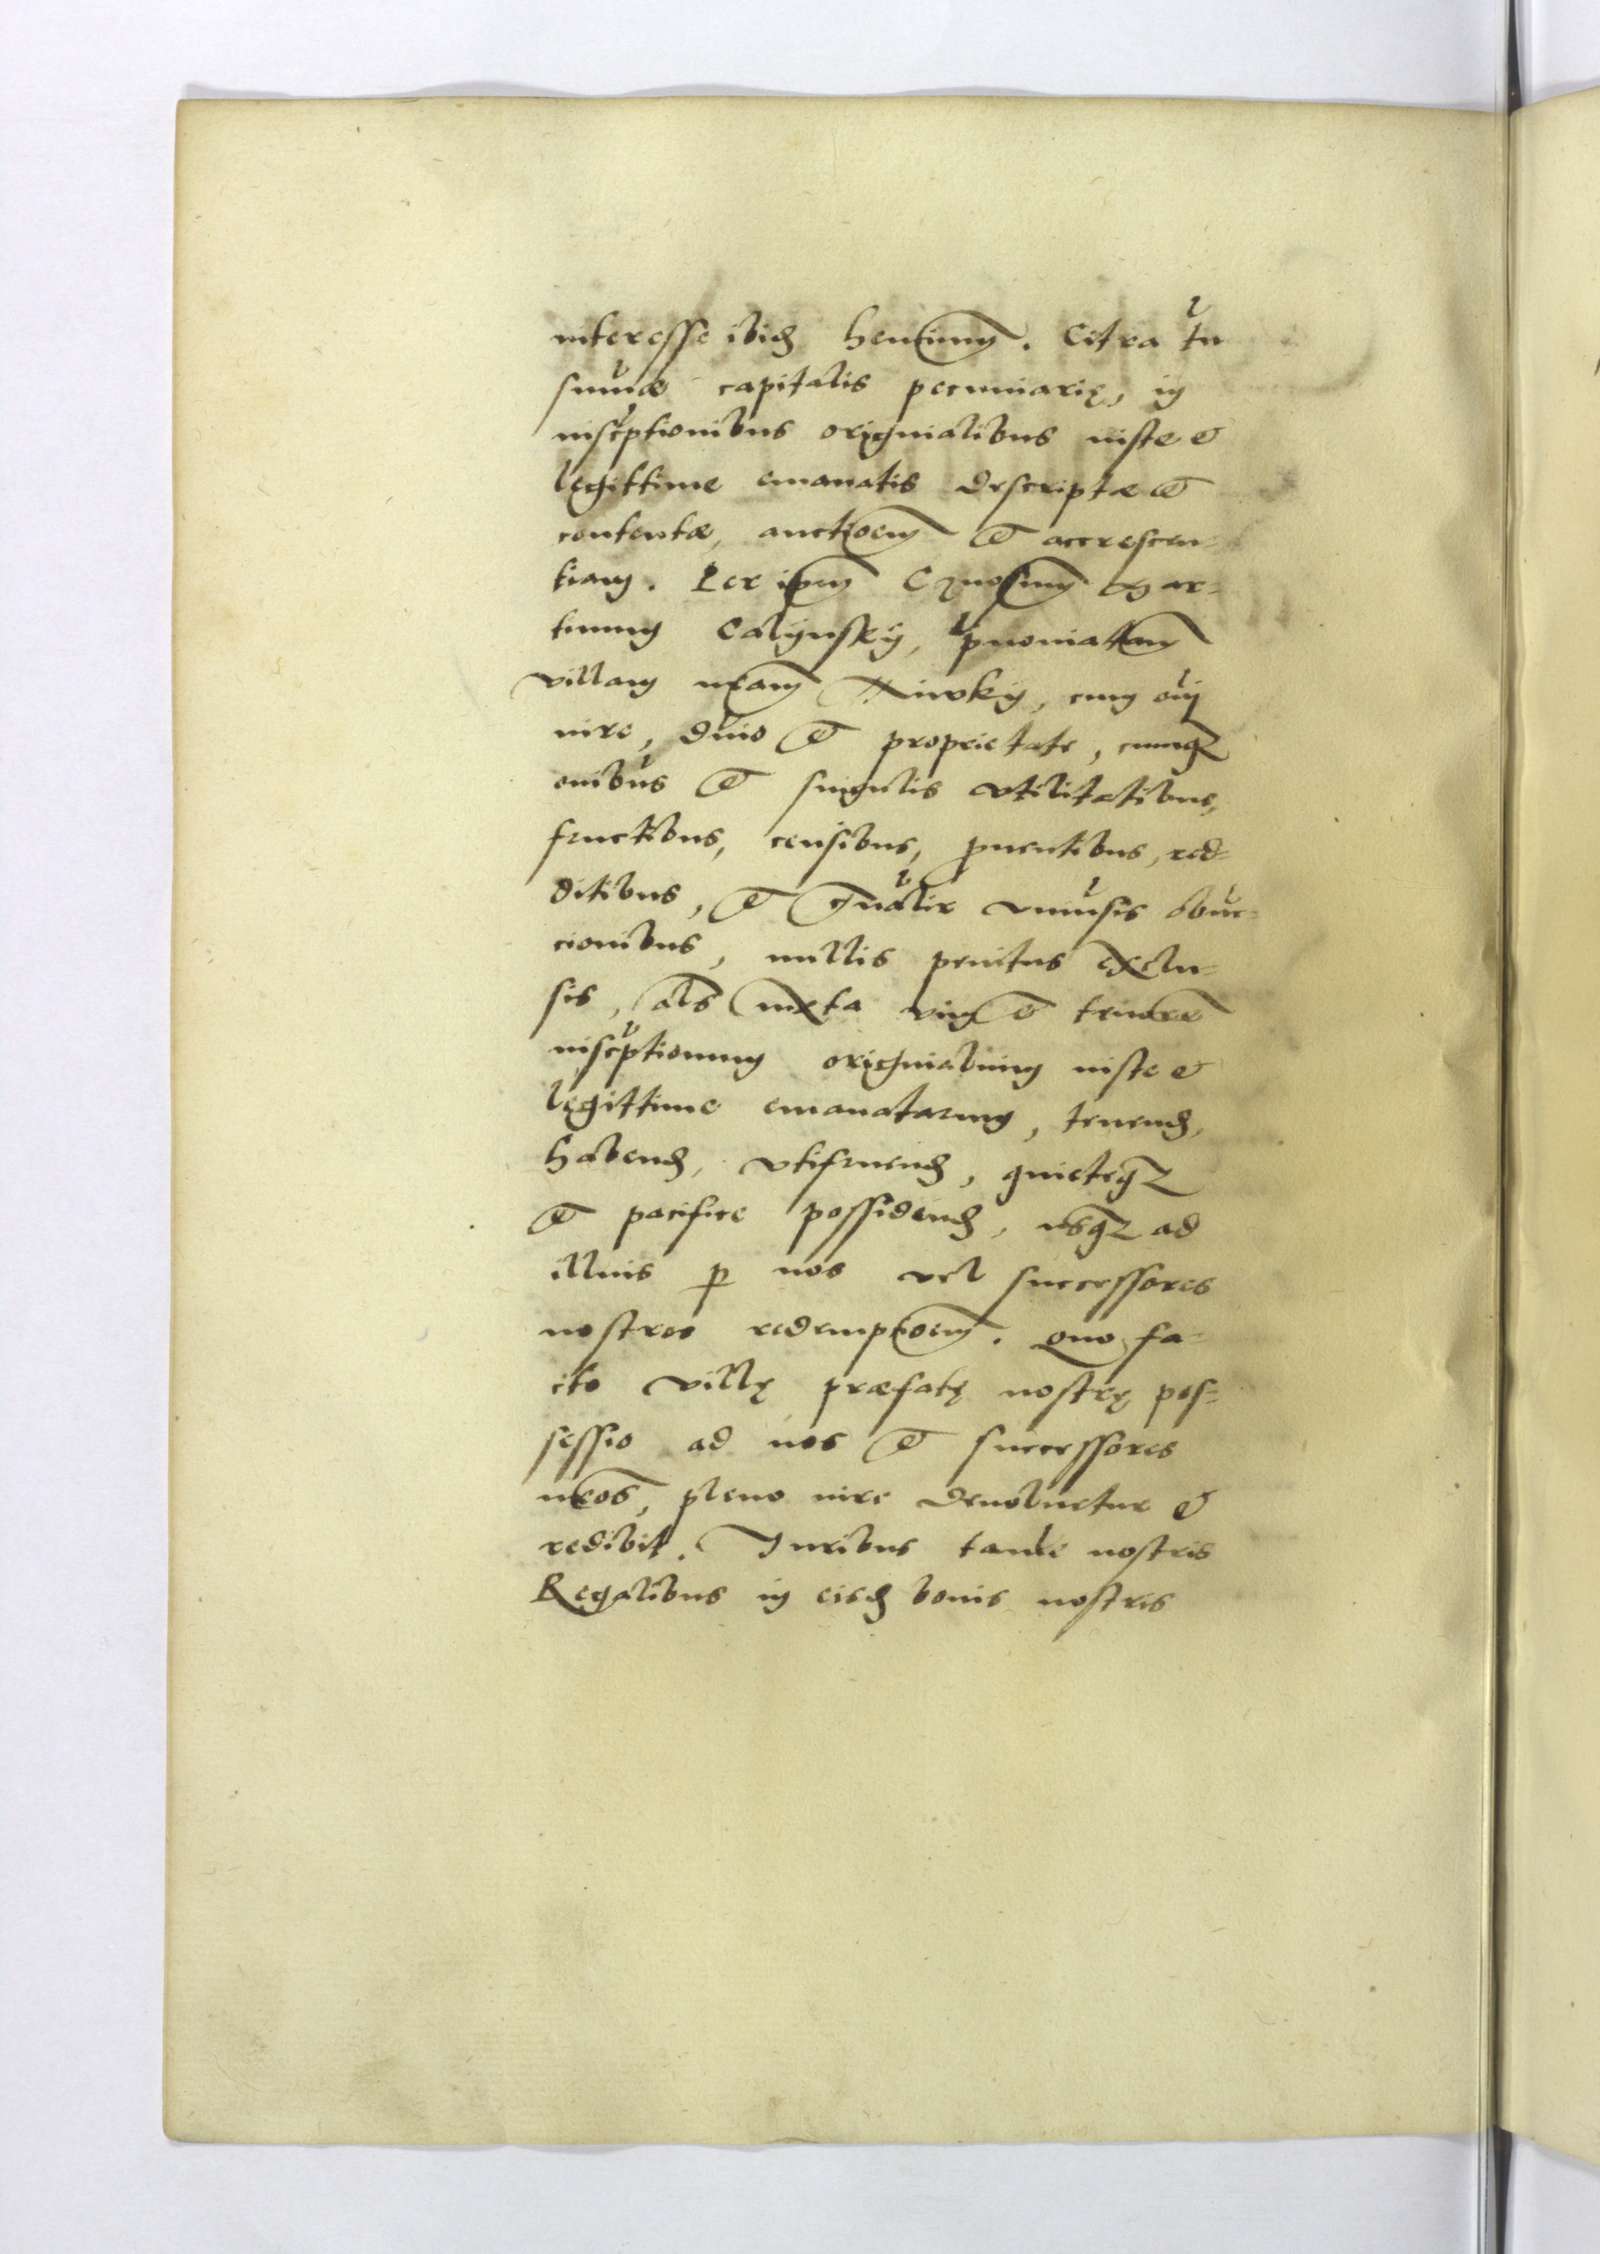 interesse ibid hentium. Citra tn
sumæ capitalis pecuniarię, in
inscptionibus originalibus iuste &
legittime emanatis descriptæ &
contentæ, auctioem & accrescen-
tiam. Per ipm Gnosum Mar-
tinum Calynsky, pnoniatam
villam nram cum oi
iure, dnio & proprietate, cumq
onibus & singulis vtilitatibus,
fructibus, censibus, puentibus, red-
ditibus, & gnalir vniusis obuen-
cionibus, nullis penitus exclu-
sis, als iuxta vim & tenore
inscptionum originalium iuste &
legittime emanatarum, tenend,
habend, vtifruend, quieteq
& pacifice possidend, usq ad
illius p nos vel successores
nostros redemptioem. Quo fa-
cto villę præfatę nostrę pos-
sessio ad nos & successores
nros, pleno iure deuoluetur &
redibit. Juribus tamen nostris
Regalibus in eisd bonis nostris